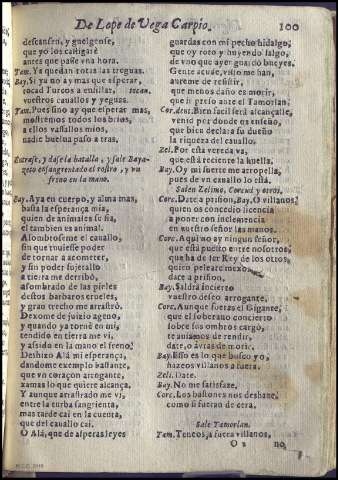 De Lope de Vega Carpio. 100
descansen, y guelgense,
que yo los castigarè
antes que passe vna hora.
Tam. Ya quedan rotas las treguas.
Bay. Si ya no ay mas que esperar,
tocad Turcos a ensillar, tocan.
vuestros cauallos y yeguas.
Tam. Pues sino ay que esperar mas,
mostremos todos los brios,
a ellos vassallos mios,
nadie buelua passo a tras.
Entrase, y dase la batalla, y sale Baya-
zeto ensangrentado el rostro, y vn
freno en la mano.
Bay. Aya en cuerpo, y alma mas,
basta la esperança mia,
quien de animales se fia,
el tambien es animal.
Assombrose me el cauallo,
sin que tuuiesse poder
de tornar a acometer,
y sin poder sujetallo
a tierra me derribó,
assombrado de las pieles
destos barbaros crueles,
y gran trecho me arrastrò.
Dexome de juizio ageno,
y quando ya tornè en mi,
tendido en tierra me vi,
y assido en la mano el freno.
Deshizo Alá mi esperança,
dandome exemplo bastante,
que vn coraçon arrogante,
xamas lo que quiere alcança.
Y aunque arrastrado me vi,
entre la turba sangrienta,
mas tarde caì en la cuenta,
que del cauallo caì.
O Alá, que de asperas leyes
guardas con mi pecho hidalgo,
que oy roto y huyendo salgo,
de vno que ayer guardó bueyes.
Gente acude, visto me han,
aureme de resistir,
que menos daño es morir,
que ir preso ante el Tamorlan.
Cor. dent. Bien facil serà alcançalle,
venid por donde es enseño
que bien declara su dueño
la riqueza del cauallo.
Zel. Por esta vereda va,
que està reciente la huella.
Bay. Oy mi suerte me atropella,
pues de vn cauallo lo està.
Salen Zelimo, Corcud y otros.
Corc. Date a prision, Bay. O villanos,
quien os concedio licencia
a poner con inclemencia
en vuestro señor las manos.
Corc. Aqui no ay ningun señor,
que està puesto entre nosotros,
que ha de ser Rey de los otros,
quien peleare mexor,
date a prision,
Bay. Saldrá incierto
vuestro desseo arrogante.
Corc. Aunque fueras el Gigante,
que el soberano concierto
sobre sus ombros cargò,
te auiamos de rendir,
date, o avràs de morir,
Bay. Esso es lo que busco yo,
hazeos villanos a fuera.
Zeli. Date.
Bay. No me satisfaze.
Corc. Los bastones nos deshaze,
como si fueran de cera.
Sale Tamorlan.
Tam. Teneos, a fuera villanos,
O 2 no